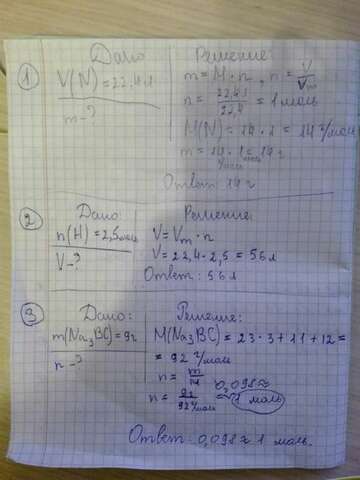 1
Дано
V(N) = 22,4 л
m - ?
Решение:
m = M · n, n = V/Vm
n = 22,4/22,4 = 1 моль
M(N) = 14 · 1 = 14 г/моль
m = 14 г/моль · 1 моль = 14 г
Ответ: 14 г
2
Дано:
n(H) = 2,5 моль
V - ?
Решение:
V = Vm · n
V = 22,4 · 2,5 = 56 л
Ответ: 56 л
3
Дано:
m(Na₃BC) = 9 г
n - ?
Решение:
M(Na₃BC) = 23 · 3 + 11 + 12 =
= 92 г/моль
n = m/M
n = 9 г/92 г/моль = 0,098 ≈
≈ 1 моль
Ответ: 0,098 ≈ 1 моль.